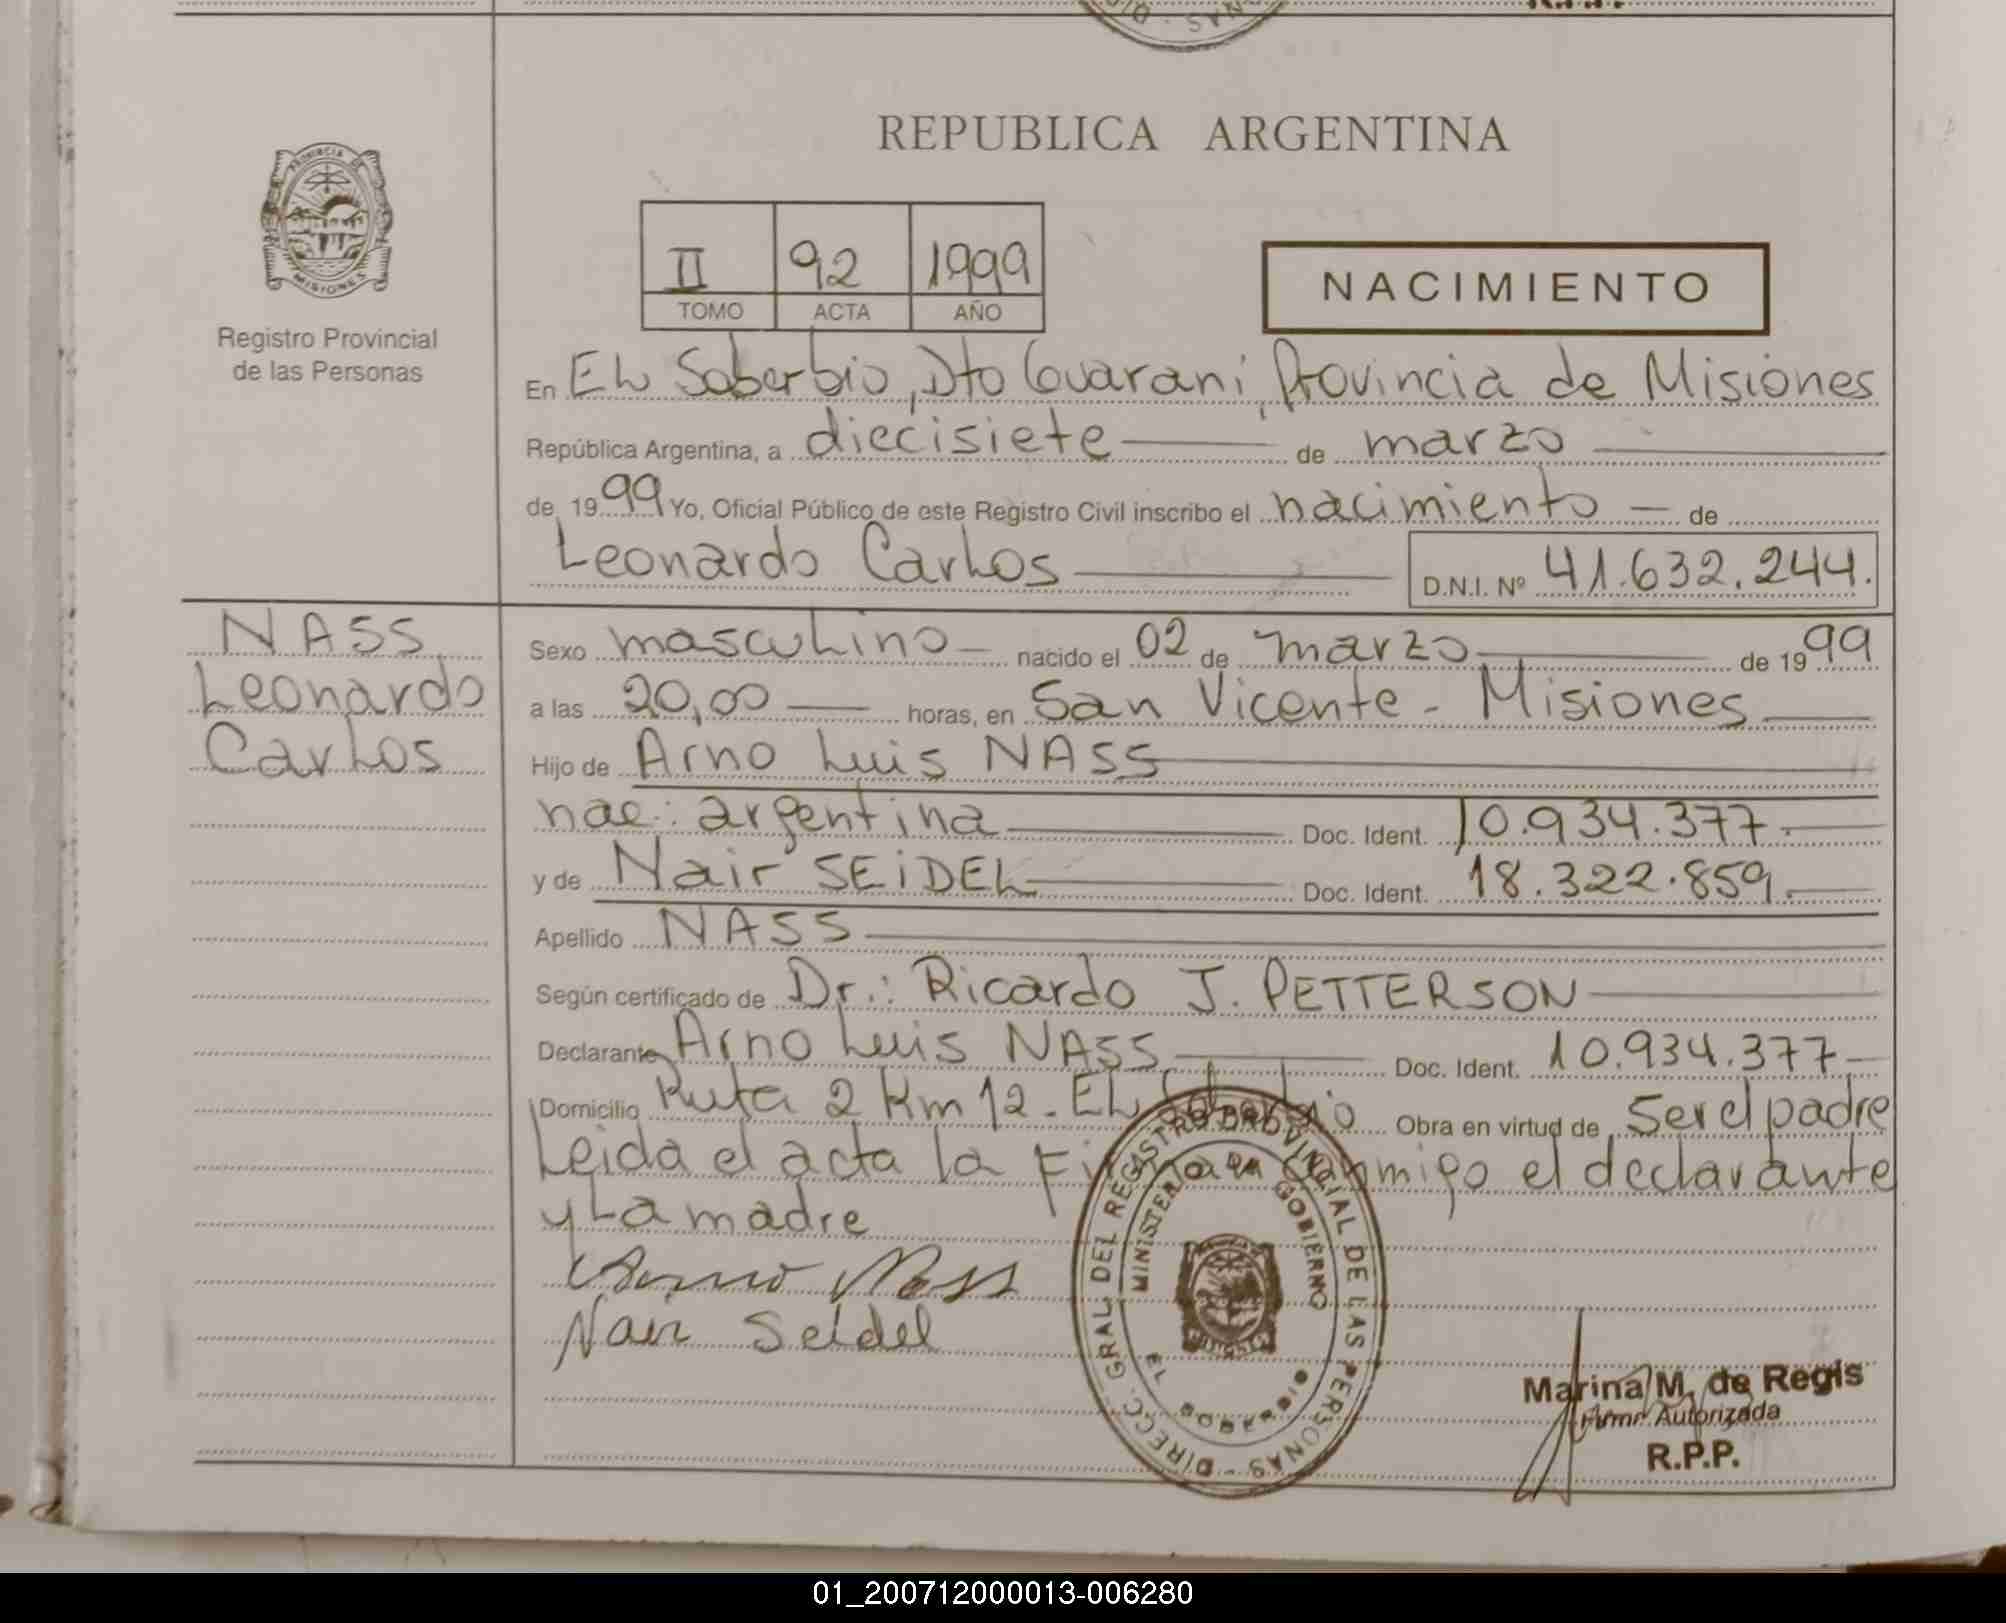 REPUBLICA ARGENTINA
PROVINCIA DE MISIONES
Registro Provincial
de las Personas
II 92 1999
TOMO ACTA AÑO
NACIMIENTO
En EL Soberbio, Dto Guaraní, Provincia de Misiones
República Argentina, a diecisiete de marzo
de 1999 Yo, Oficial Público de este Registro Civil inscribo el nacimiento de
Leonardo Carlos D.N.I. Nº 41.632.244.
NASS
Leonardo
Carlos
Sexo masculino nacido el 02 de marzo de 1999
a las 20,00 horas, en San Vicente - Misiones
Hijo de Arno Luis NASS
nac: argentina Doc. Ident. 10.934.377.
y de Nair SEIDEL Doc. Ident. 18.322.859.
Apellido NASS
Según certificado de Dr.: Ricardo J. PETTERSON
Declarante Arno Luis NASS Doc. Ident. 10.934.377
Domicilio Ruta 2 Km 12. EL Soberbio Obra en virtud de ser el padre
Leida el acta la Firman conmigo el declarante
y La madre
Arno Nass
Nair Seidel
DIRECC. GRAL DEL REGISTRO PROVINCIAL DE LAS PERSONAS
MINISTERIO DE GOBIERNO
EL SOBERBIO
Marina M. de Regis
Firma Autorizada
R.P.P.
01_200712000013-006280